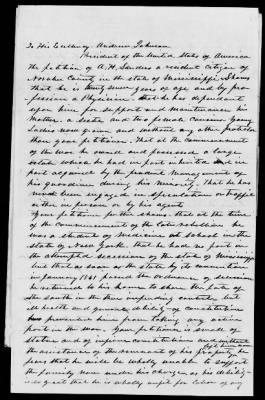 To His Excellency Andrew Johnson
President of the United States of America
The petition of A. H. Sanders a resident citizen of
Noxubee County in the state of Mississippi. Shows
that he is twenty seven years of age and by pro-
fession a Physician. that he has dependant
upon him for support and maintenance his
Mother, a Sister and two female cousins. Young
Ladies now grown and without any other protector
than your petitioner. That at the commencement
of the war he owned and possessed a large
estate which he had in part inherited and in
part acquired by the prudent management of
his guardian during his minority. That he has
never been engaged in speculation or traffic
either in person or by his agent
Your petitioner further shows that at the time
of the commencement of the late rebellion he
was a student of Medicine at School in the
State of New York. that he had no part in
the attempted secession of the state of Mississippi
but that as soon as the state by its convention
in January 1861 passed the Ordinance of secession
he returned to his home to share the fate of
the South in the then impending contest, but
ill health and general debility of constitution
prevented him from taking any active
part in the war. Your petitioner is small of
stature and of infirm constitution and without
the assistance of the remnant of his property he
fears that he will be wholly unable to support
the family now under his charge, as his debility
is so great that he is wholly unfit for labor of any